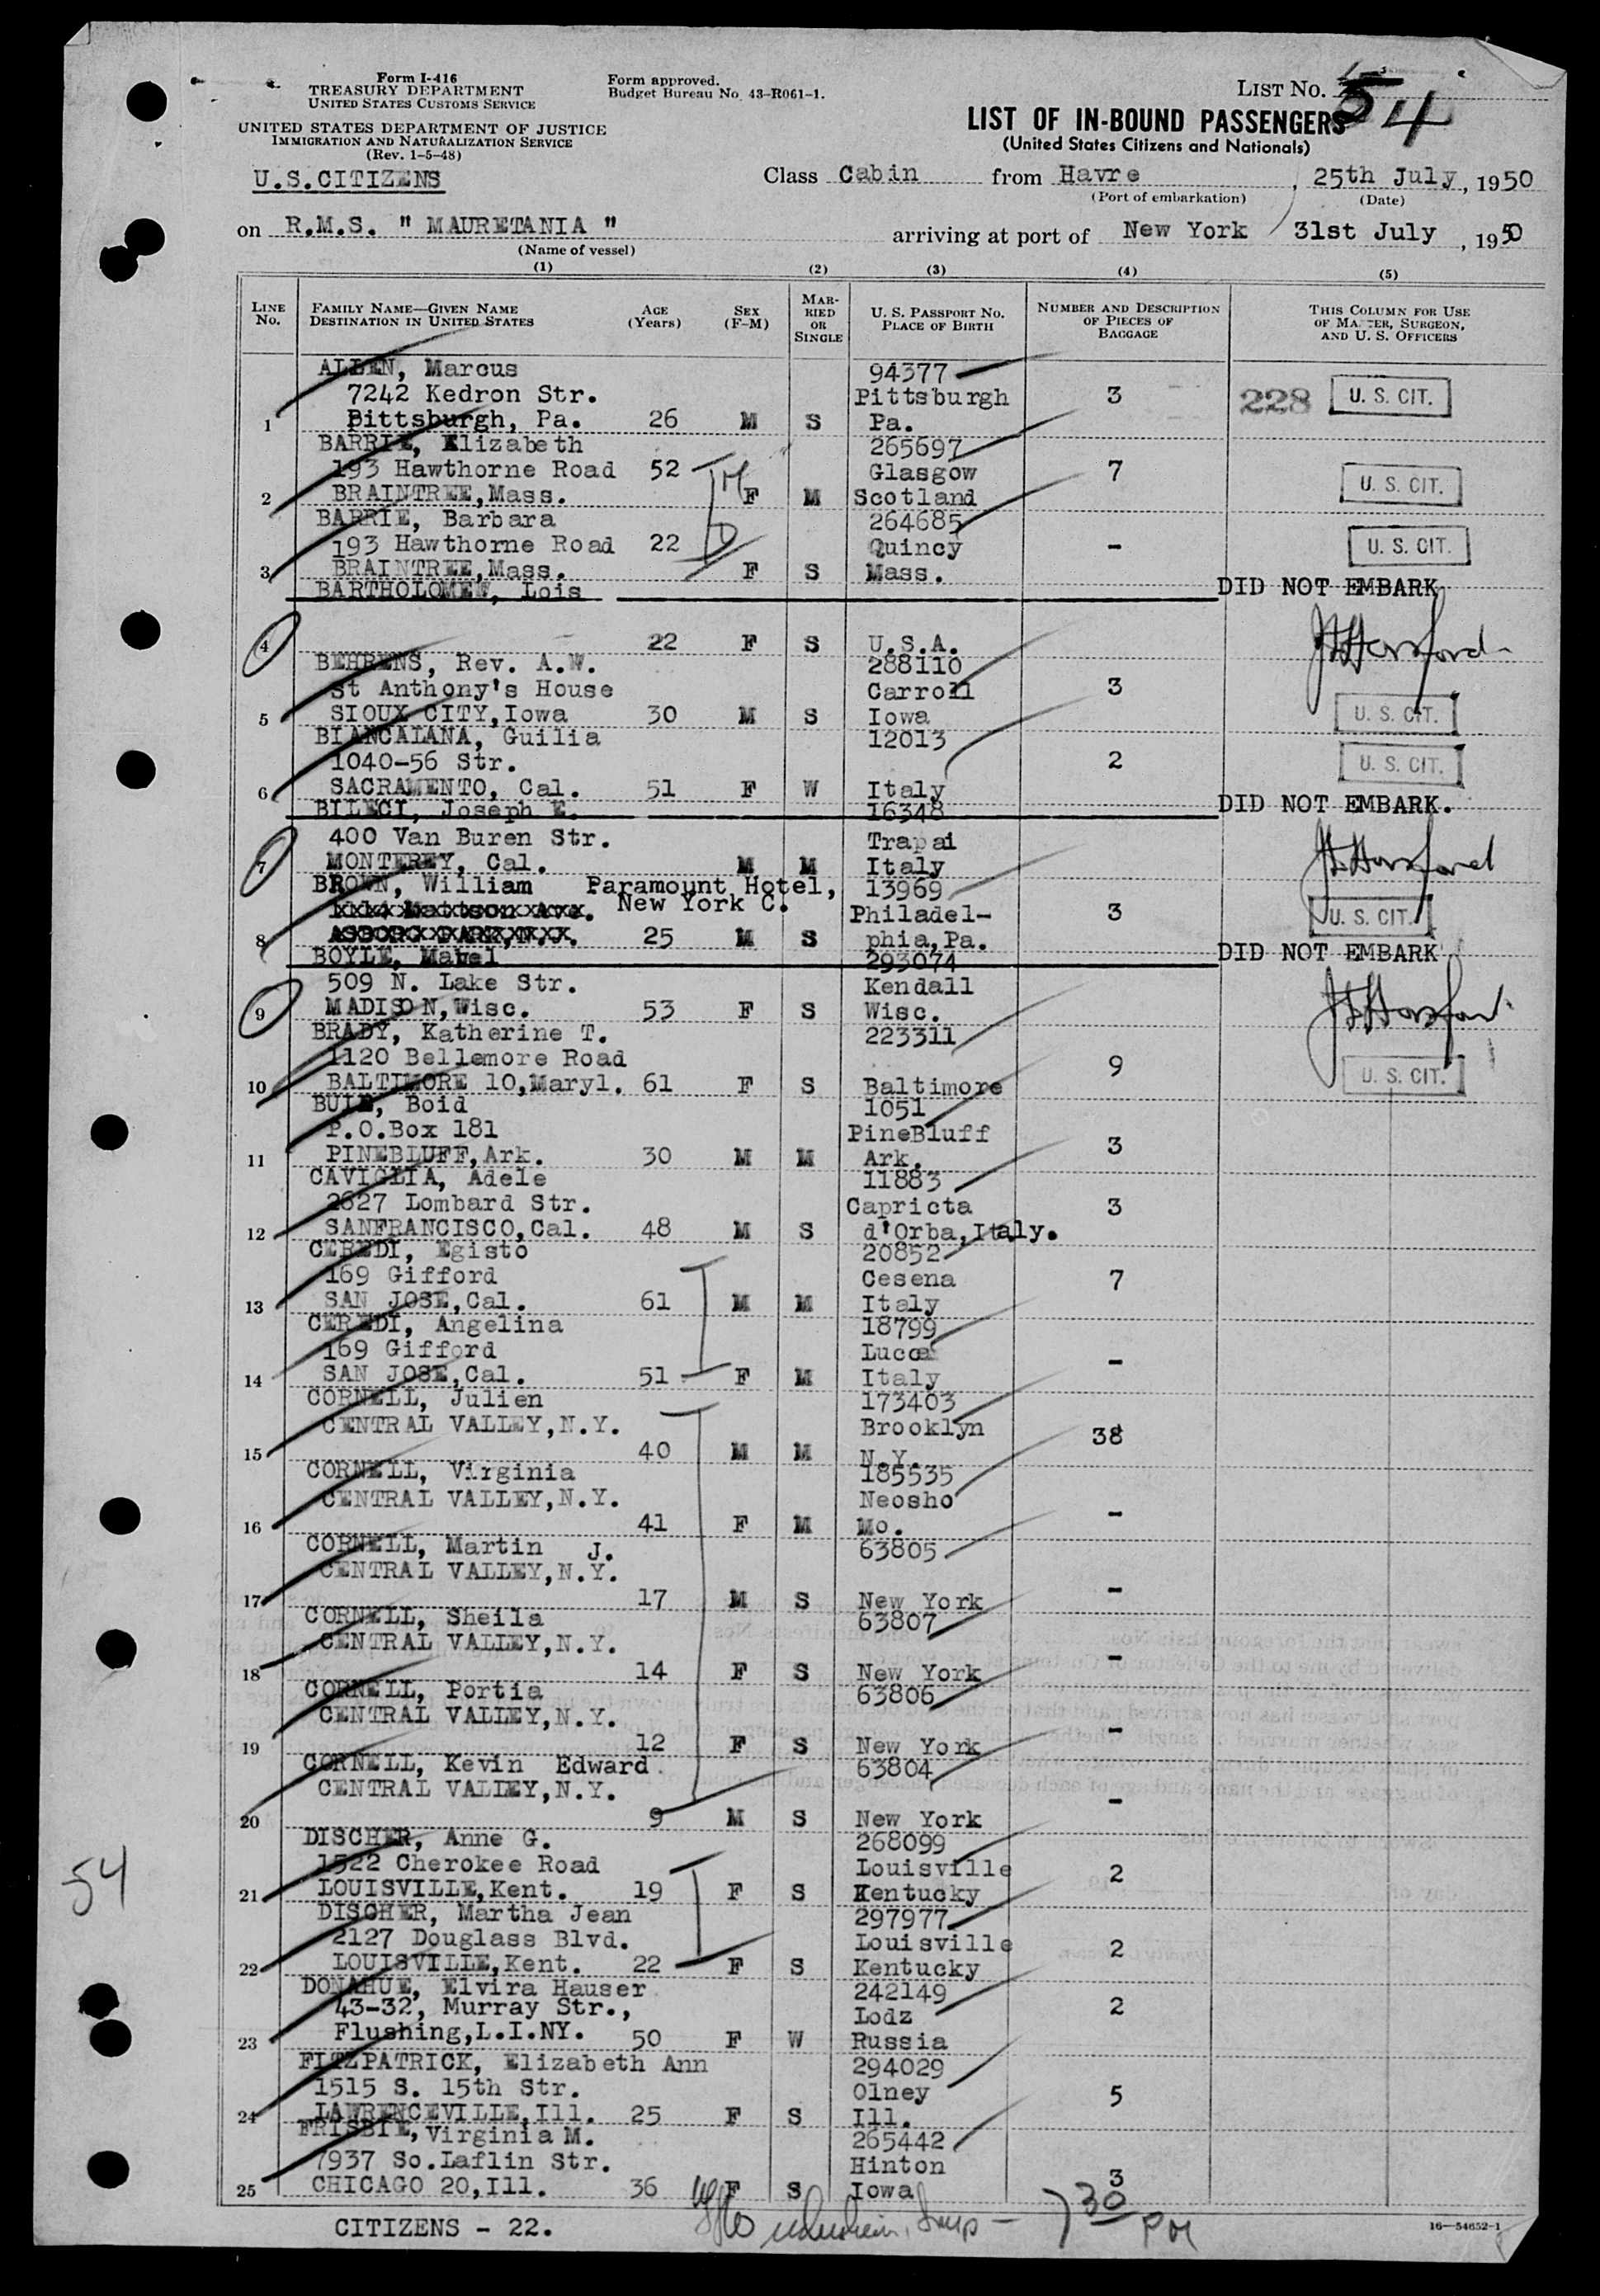 Form I-416
TREASURY DEPARTMENT
UNITED STATES CUSTOMS SERVICE
UNITED STATES DEPARTMENT OF JUSTICE
IMMIGRATION AND NATURALIZATION SERVICE
(Rev. 1-5-48)
Form approved.
Budget Bureau No. 43-R061-1.
LIST No. 54
LIST OF IN-BOUND PASSENGERS
(United States Citizens and Nationals)
U.S.CITIZENS
Class Cabin from Havre, 25th July, 1950
(Port of embarkation) (Date)
on R.M.S. " MAURETANIA " arriving at port of New York 31st July, 1950
(Name of vessel)
(1) (2) (3) (4) (5)
LINE No.
FAMILY NAME—GIVEN NAME
DESTINATION IN UNITED STATES
AGE (Years)
SEX (F-M)
MARRIED OR SINGLE
U. S. PASSPORT No.
PLACE OF BIRTH
NUMBER AND DESCRIPTION OF PIECES OF BAGGAGE
THIS COLUMN FOR USE OF MASTER, SURGEON, AND U. S. OFFICERS
ALLEN, Marcus 94377
7242 Kedron Str. Pittsburgh 3 228 U. S. CIT.
1 Pittsburgh, Pa. 26 M S Pa.
BARRIE, Elizabeth 265697
193 Hawthorne Road 52 Glasgow 7 U. S. CIT.
2 BRAINTREE,Mass. F M Scotland
BARRIE, Barbara 264685
193 Hawthorne Road 22 Quincy - U. S. CIT.
3 BRAINTREE,Mass. F S Mass.
BARTHOLOMEW, Lois DID NOT EMBARK
4 22 F S U.S.A.
BEHRENS, Rev. A.W. 288110
St Anthony's House Carroll 3
5 SIOUX CITY,Iowa 30 M S Iowa U. S. CIT.
BIANCALANA, Guilia 12013
1040-56 Str. 2 U. S. CIT.
6 SACRAMENTO, Cal. 51 F W Italy
BILECI, Joseph E. 16348 DID NOT EMBARK.
400 Van Buren Str. Trapai
7 MONTEREY, Cal. M M Italy
BROWN, William Paramount Hotel, 13969
New York C. Philadel- 3 U. S. CIT.
8 25 M S phia,Pa.
BOYLE, Mabel 293074 DID NOT EMBARK
509 N. Lake Str. Kendall
9 MADISON,Wisc. 53 F S Wisc.
BRADY, Katherine T. 223311
1120 Bellemore Road 9
10 BALTIMORE 10,Maryl. 61 F S Baltimore U. S. CIT.
BUIE, Boid 1051
P.O.Box 181 PineBluff 3
11 PINEBLUFF,Ark. 30 M M Ark.
CAVIGLIA, Adele 11883
2627 Lombard Str. Capricta 3
12 SANFRANCISCO,Cal. 48 M S d'Orba,Italy.
CEREDI, Egisto 20852
169 Gifford Cesena 7
13 SAN JOSE,Cal. 61 M M Italy
CEREDI, Angelina 18799
169 Gifford Lucca -
14 SAN JOSE,Cal. 51 F M Italy
CORNELL, Julien 173403
CENTRAL VALLEY,N.Y. Brooklyn 38
15 40 M M N.Y.
CORNELL, Virginia 185535
CENTRAL VALLEY,N.Y. Neosho -
16 41 F M Mo.
CORNELL, Martin J. 63805
CENTRAL VALLEY,N.Y.
17 17 M S New York -
CORNELL, Sheila 63807
CENTRAL VALLEY,N.Y. -
18 14 F S New York
CORNELL, Portia 63806
CENTRAL VALLEY,N.Y. -
19 12 F S New York
CORNELL, Kevin Edward 63804
CENTRAL VALLEY,N.Y. -
20 9 M S New York
DISCHER, Anne G. 268099
1522 Cherokee Road Louisville 2
21 LOUISVILLE,Kent. 19 F S Kentucky
DISCHER, Martha Jean 297977
2127 Douglass Blvd. Louisville 2
22 LOUISVILLE,Kent. 22 F S Kentucky
DONAHUE, Elvira Hauser 242149
43-32, Murray Str., Lodz 2
23 Flushing,L.I.NY. 50 F W Russia
FITZPATRICK, Elizabeth Ann 294029
1515 S. 15th Str. Olney 5
24 LAWRENCEVILLE,Ill. 25 F S Ill.
FRISBIE,Virginia M. 265442
7937 So.Laflin Str. Hinton 3
25 CHICAGO 20,Ill. 36 F S Iowa
CITIZENS - 22.
7 30 PM
16—54652-1
54